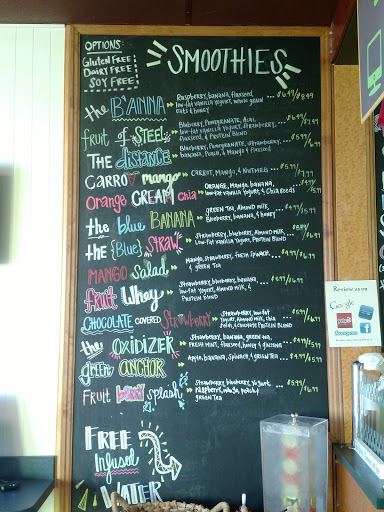 OPTIONS:
Gluten FREE
Dairy FREE
SOY FREE
SMOOTHIES
the B'ANNA
Raspberry, banana, flaxseed, ... $6.49/$8.49
low-fat vanilla yogurt, whole grain
oats & honey
fruit of STEEL
Blueberry, Pomegranate, Acai,
low-fat vanilla yogurt, strawberry,
flaxseed, & Protein Blend
THE distance
Blueberry, Pomegranate, strawberry,
banana, & Mango & flaxseed
CARRO mango
CARROT, MANGO, & NUTMEG
Orange CREAM chia
ORANGE, Mango, banana,
low-fat vanilla Yogurt, & Chia Seeds
the blue BANANA
GREEN TEA, Almond milk,
Blueberry, banana, & honey
the {Blue} STRAW
Strawberry, blueberry, Almond milk,
Low-fat vanilla yogurt, PROTEIN BLEND
MANGO Salad
Mango, strawberry, FRESH SPINACH,
& green TEA
fruit Whey
Strawberry, blueberry, banana,
low-fat yogurt, Almond milk, &
PROTEIN BLEND
CHOCOLATE COVERED STRAWBERRY
Strawberry, low-fat
yogurt, Almond milk, chia
seeds, & chocolate PROTEIN BLEND
the OXIDIZER
Strawberry, banana, green tea,
FRESH MINT, flaxseed, honey, & ginseng
green ANCHOR
Apple, banana, Spinach, & green TEA
Fruit berry splash
Strawberry, blueberry, yogurt,
raspberry, mango, peach,
green TEA
FREE
Infused
WATER
Review us on
Google